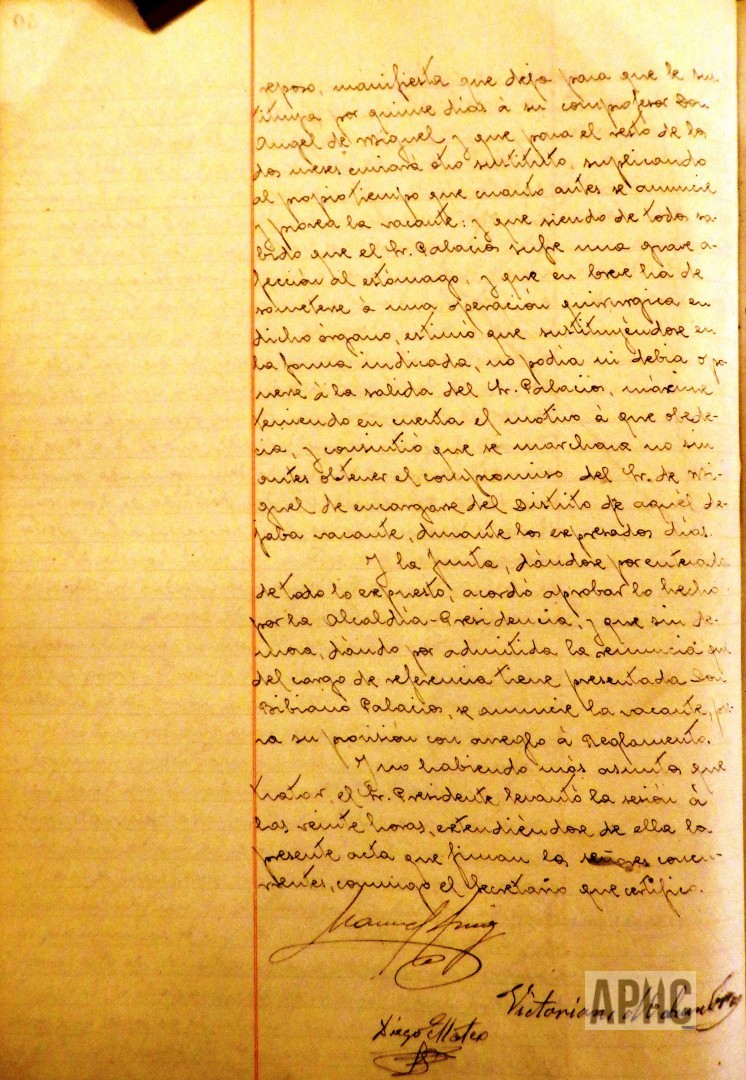 reposo, manifiesta que deja para que le sus
tituya por quince días á su comprofesor Don
Angel de Miguel y que para el resto de los
dos meses enviará otro sustituto, suplicando
al propio tiempo que cuanto antes se anuncie
y provea la vacante: y que siendo de todos sa-
bido que el Sr. Palacios sufre una grave a-
fección al estómago, y que en breve ha de
someterse á una operación quirúrgica en
dicho órgano, estimó que sustituyéndose en
la forma indicada, no podia ni debia opo
nerse á la salida del Sr. Palacios, máxime
teniendo en cuenta el motivo á que obede-
cia, y consintió que se marchara no sin
antes obtener el compromiso del Sr. de Mi-
guel de encargarse del Distrito que aquél de-
jaba vacante, durante los expresados días.
Y la Junta, dándose por enterada
de todo lo expuesto, acordó aprobar lo hecho
por la Alcaldía-Presidencia, y que sin de-
mora, dando por admitida la renuncia que
del cargo de referencia tiene presentada Don
Bibiano Palacios, se anuncie la vacante, pa-
ra su provisión con arreglo á Reglamento.
Y no habiendo más asuntos que
tratar, el Sr. Presidente levantó la sesión á
las veinte horas, extendiéndose de ella la
presente acta que firman los señores concu-
rrentes, conmigo el Secretario que certifico.
Manuel
Victoriano
Diego Mateo
APHG